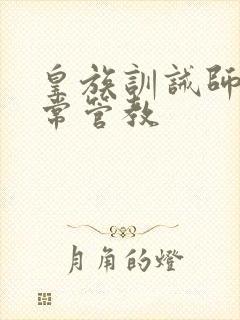 皇族訓誡師
常管教
月角的燈